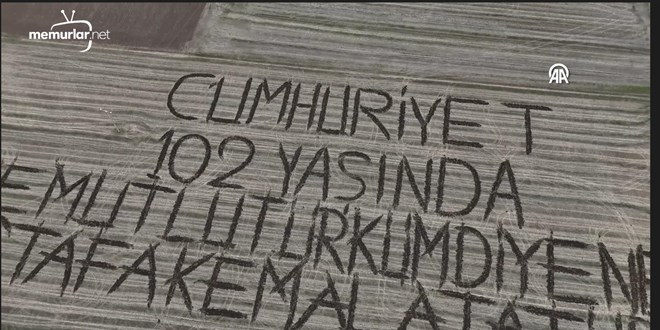 memurlar.net
AA
CUMHURİYET
102 YASINDA
E MUTLU TURKUM DIYENE
TAFA KEMAL ATAT